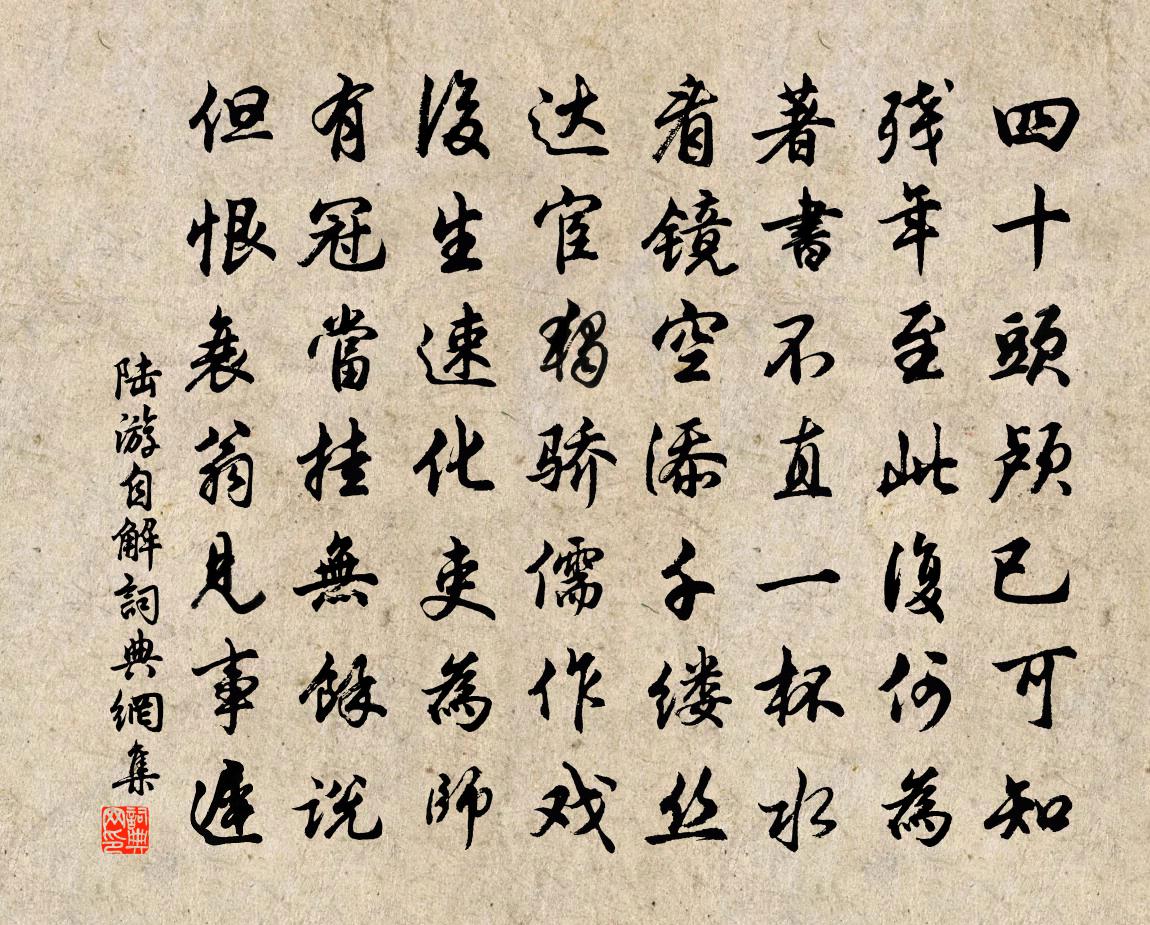 四十頭颅已可知
残年至此復何為
著書不直一杯水
看镜空添千缕丝
达宦独骄儒作戏
後生速化吏為師
有冠當挂無餘説
但恨衰翁見事遲
陆游自解詞典網集
詞典网印